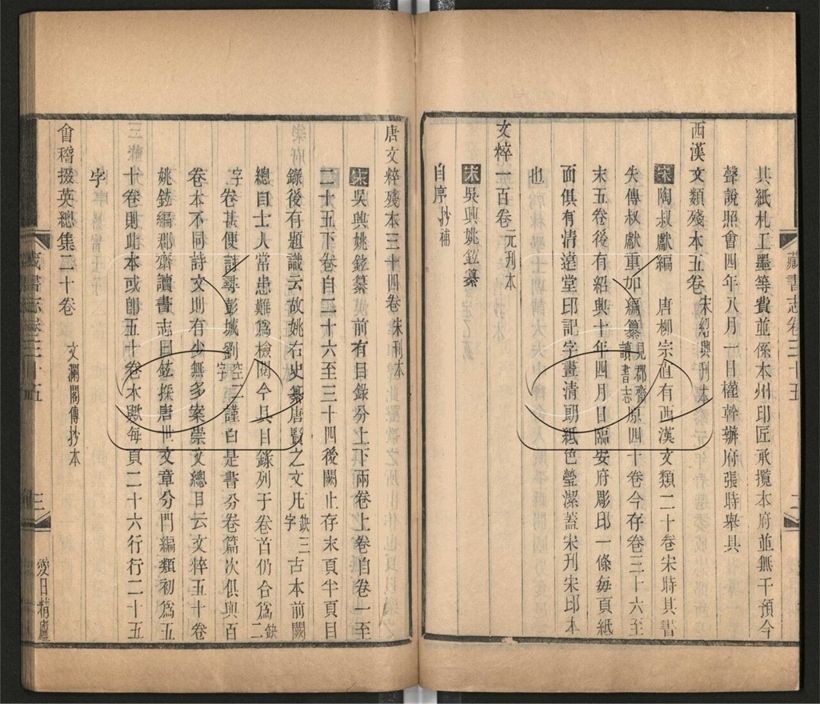 其紙札工墨等費並係本州印匠承攬本府並無干預今
聲說照會四年八月一日權幹辦府張時舉具
西漢文類殘本五卷 宋紹興刊本
宋陶叔獻編 唐柳宗直有西漢文類二十卷宋時其書
失傳叔獻重加編纂見郡齋讀書志原四十卷今存卷三十六至
末五卷後有紹興十年四月日臨安府彫印一條每頁紙
面俱有清遶堂印記字畫清朗紙色瑩潔蓋宋刊宋印本
也
文粹一百卷 元刊本
宋吳興姚鉉纂
自序抄補
藏書志卷三十五
二
唐文粹殘本三十四卷 宋刊本
宋吳興姚鉉纂 前有目錄分上下兩卷上卷自卷一至
二十五下卷自二十六至三十四後闕止存末頁半頁目
錄後有題識云故姚右史纂唐賢之文凡缺三字古本前闕
總目士人常患難為檢閱今具目錄列于卷首仍合為缺二字
卷甚便討尋彭城劉空二字謹白是書分卷篇次俱與百
卷本不同詩文則有少無多案崇文總目云文粹五十卷
姚鉉編郡齋讀書志曰鉉採唐世文章分門編類初為五
十卷則此本或即五十卷本歟每頁二十六行行二十五
字
會稽掇英總集二十卷 文瀾閣傳抄本
藏書志卷三十五
三
愛日精廬